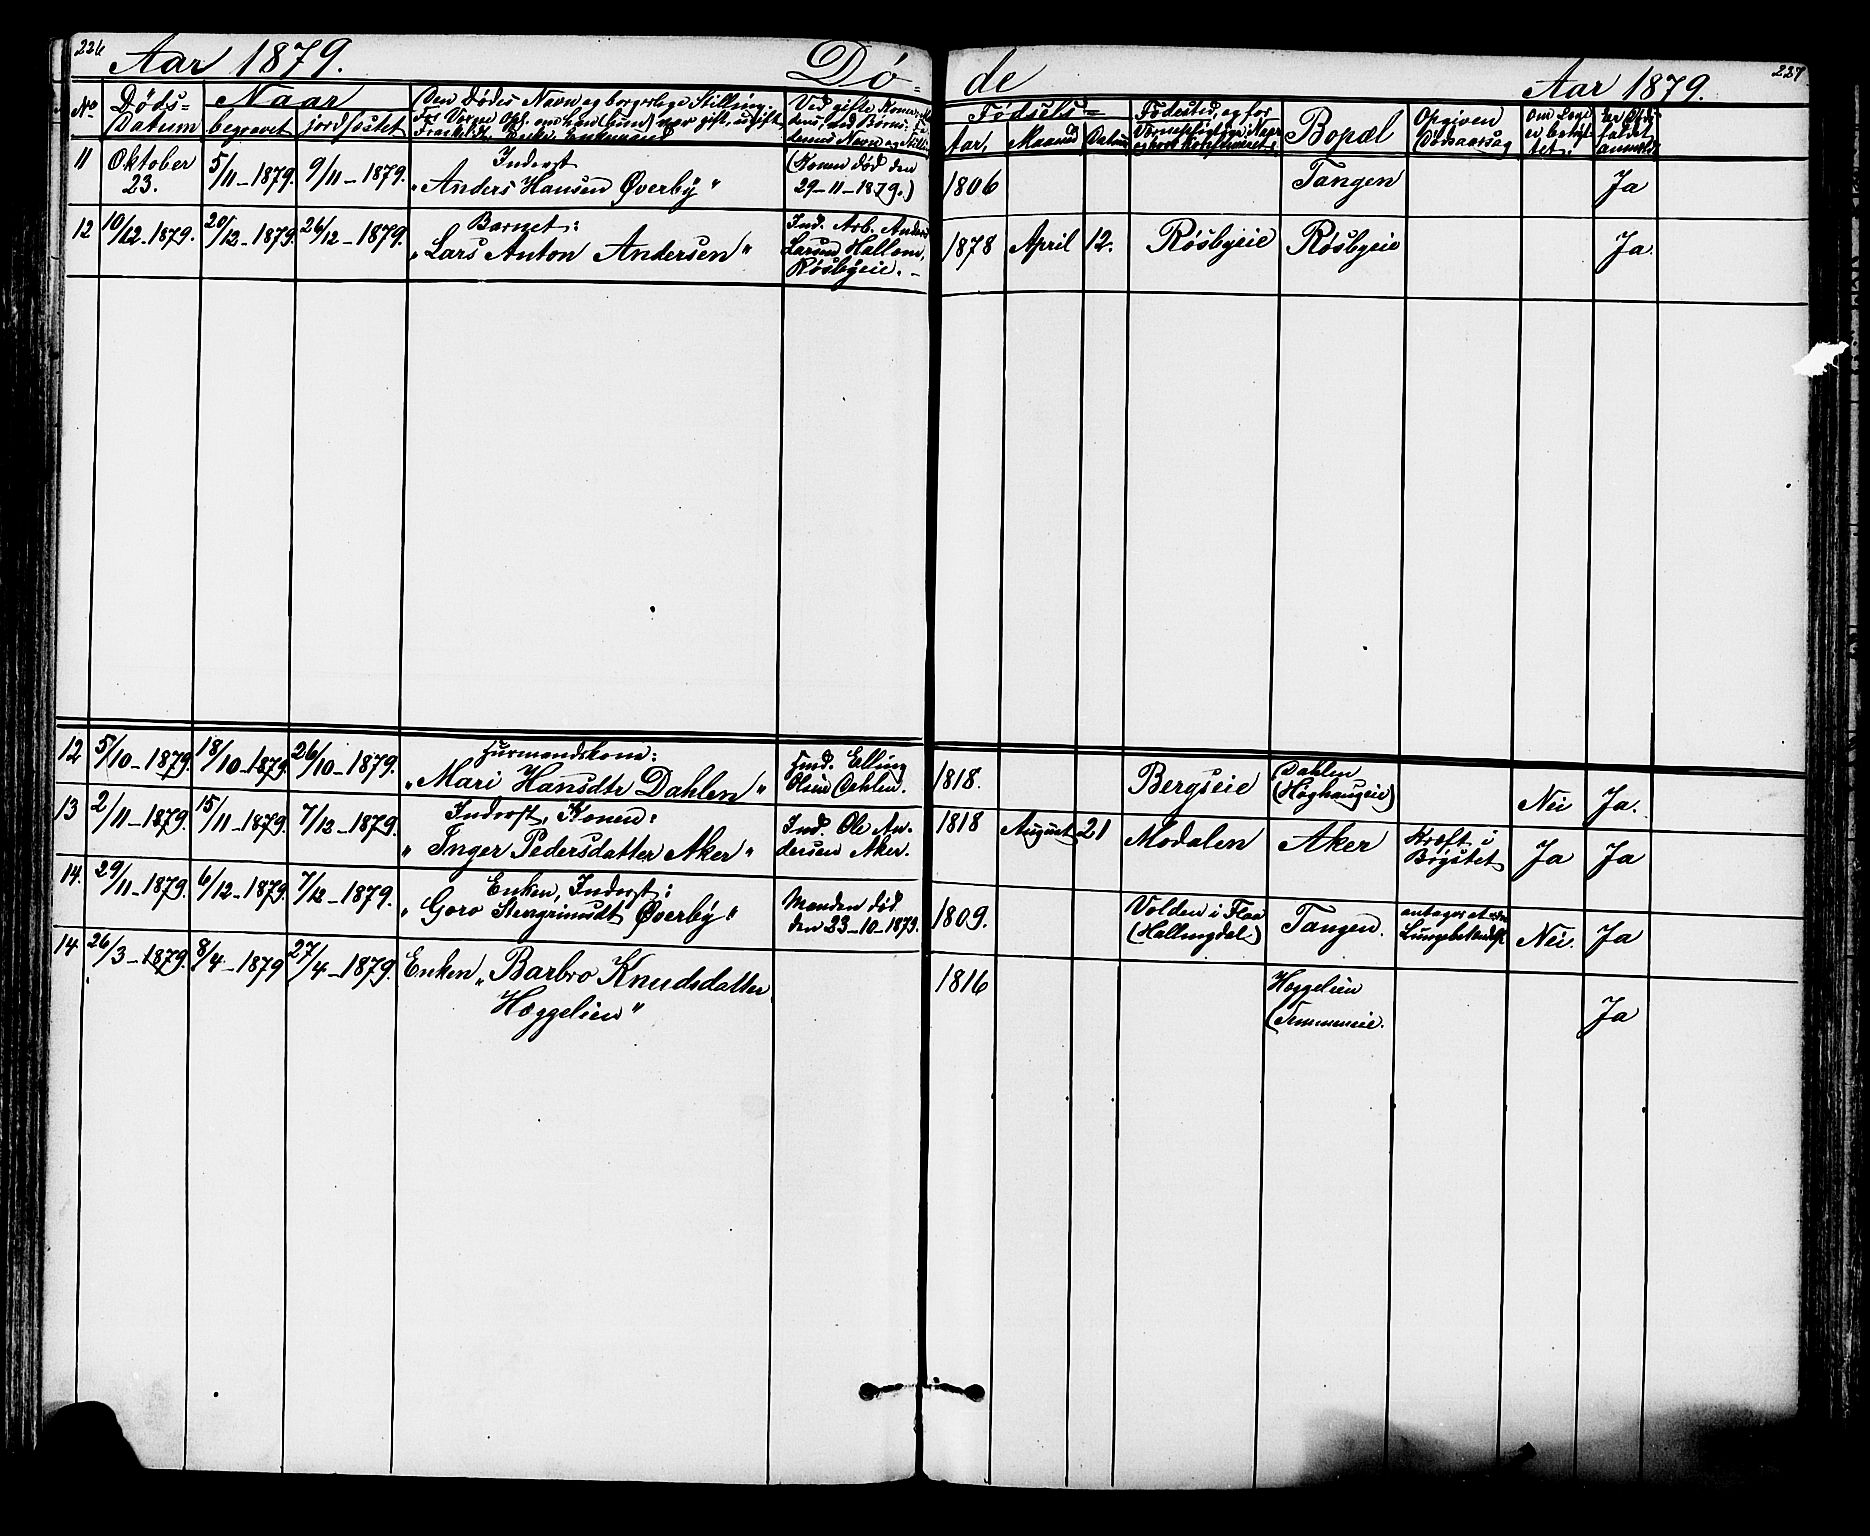 226
Aar 1879.
Dø-
de
Aar 1879.
227
No
Døds-
Datum
Naar
begravet
jordfæstet
Den Dødes Navn og borgerlige Stilling.
For Voxne Opl. om han (hun) var gift, ugift,
Fraskilt, Enke, Enkemand
Ved gifte
Navn og
Fødsels-
Aar,
Maaned
Datum
Fødested, og for
Bopæl
Opgiven
Dødsaarsag
Om Læge
er benyt-
tet.
Er Døds-
faldet
anmeldt
11
Oktober
23.
5/11-1879.
9/11-1879.
Inderst
"Anders Hansen Øverby"
(Konen død den
29-11-1879.)
1806
Tangen
Ja
12
10/12-1879.
20/12-1879.
26/12-1879.
Barnet:
"Lars Anton Andersen"
Ind. Arb. Anders
Larsen Hallom,
Røsbyeie.
1878
April
12.
Røsbyeie
Røsbyeie
Ja.
12
5/10-1879.
18/10-1879.
26/10-1879.
Husmandskone:
"Mari Hansdtr Dahlen"
Husd. Elling
Olsen Dehlen.
1818.
Bergseie
Dahlen
(Høghaugeie)
Nei
Ja.
13
2/11-1879.
15/11-1879.
7/12-1879.
Inderst, Konen:
"Inger Pedersdatter Aker"
Ind. Ole An-
dersen Aker.
1818
August
21
Modalen
Aker
Kræft i
Brystet
Ja
Ja
14.
29/11-1879.
6/12-1879.
7/12-1879.
Enken, Inderst:
"Goro Stengrimsdt Øverby"
Manden død
den 23-10-1879.
1809.
Volden i Flaa
(Hallingdal)
Tangen.
antages at være
Lungebetændelse
Nei.
Ja
14.
26/3-1879.
8/4-1879
27/4-1879.
Enken "Barbro Knudsdatter
Hæggelien"
1816
Hæggelien
Ja